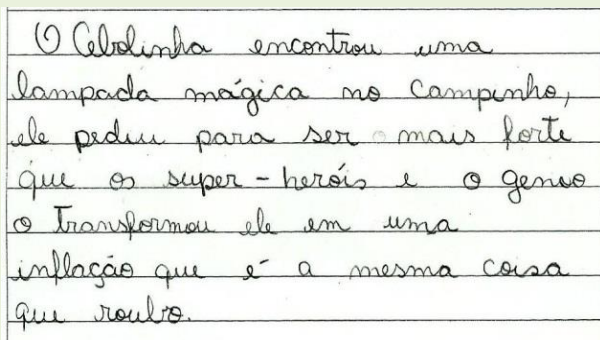 O Cebolinha encontrou uma
lampada mágica no campinho,
ele pediu para ser o mais forte
que os super-heróis e o genio
o transformou ele em uma
inflação que é a mesma coisa
que roubo.